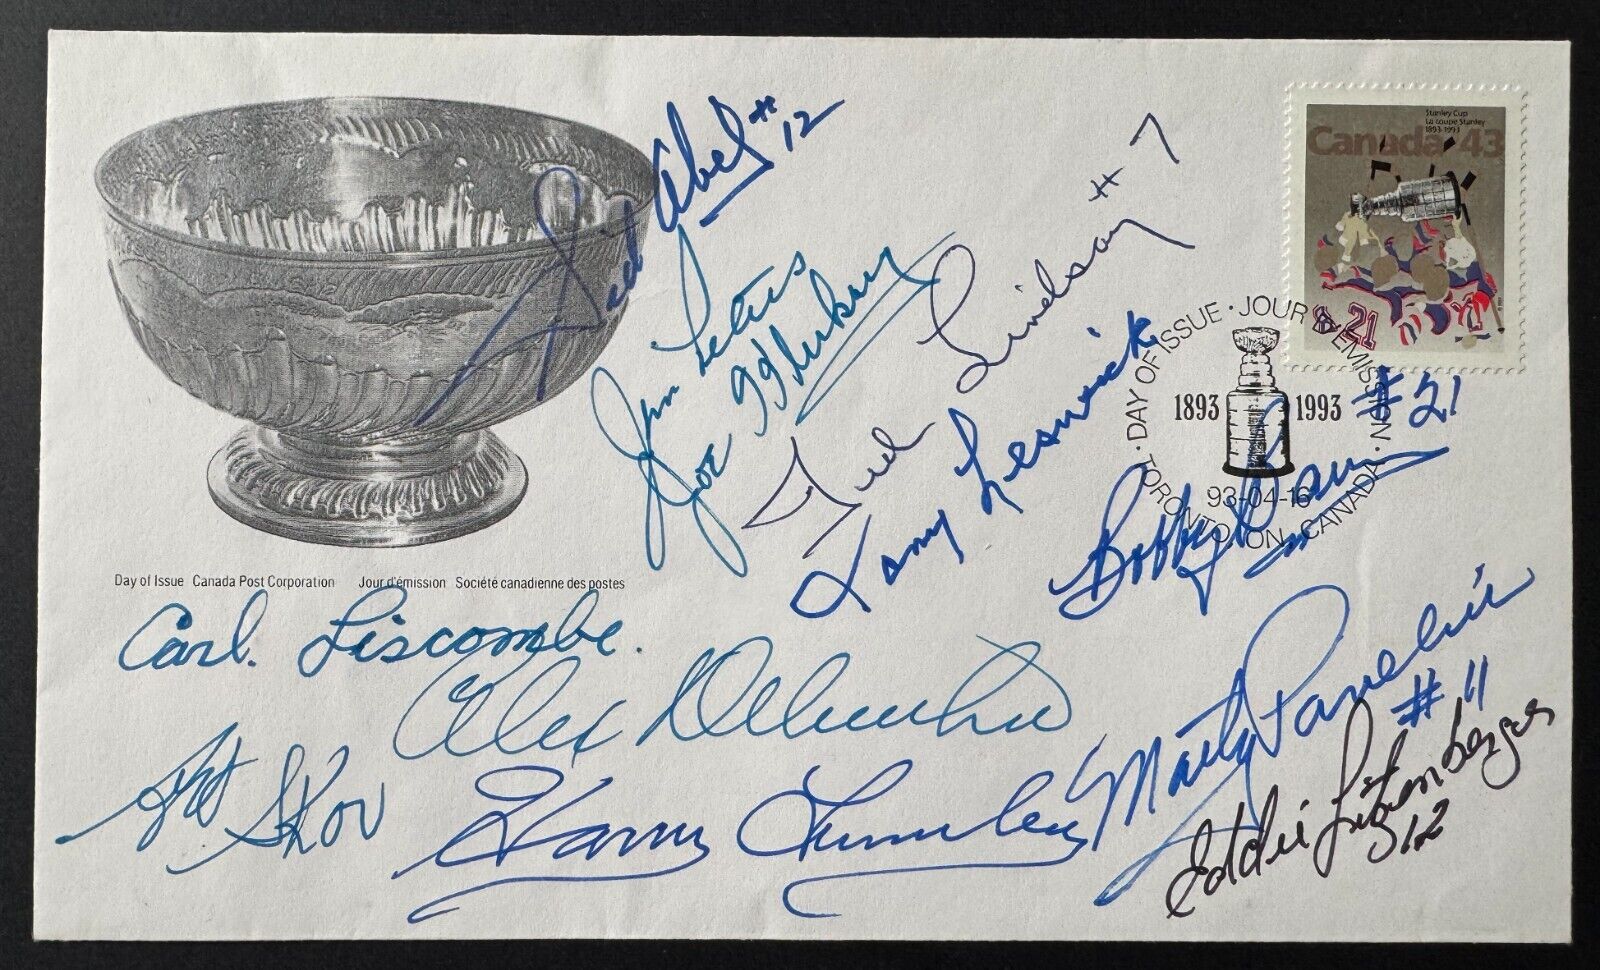 Stanley Cup
La Coupe Stanley
1893-1993
Canada 43
Sid Abel #12
Jim Peters
Ted Lindsay #7
Tony Leswick
DAY OF ISSUE · JOUR D'ÉMISSION
1893 1993
93-04-16
TORONTO, ON CANADA
21
#21
Bobby Baun
Day of Issue Canada Post Corporation Jour d'émission Société canadienne des postes
Carl. Liscombe.
Alex Delvecchio
Marty Pavelich
#11
Art Skov
Harry Lumley
Eddie Litzenberger
12